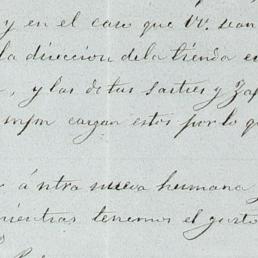 y en el caso que VV. sean
la direccion dela tienda en
, y las de tus sastres y Zap
cargan estos por lo q
á ntra nueva humana y
mientras tenemos el gusto